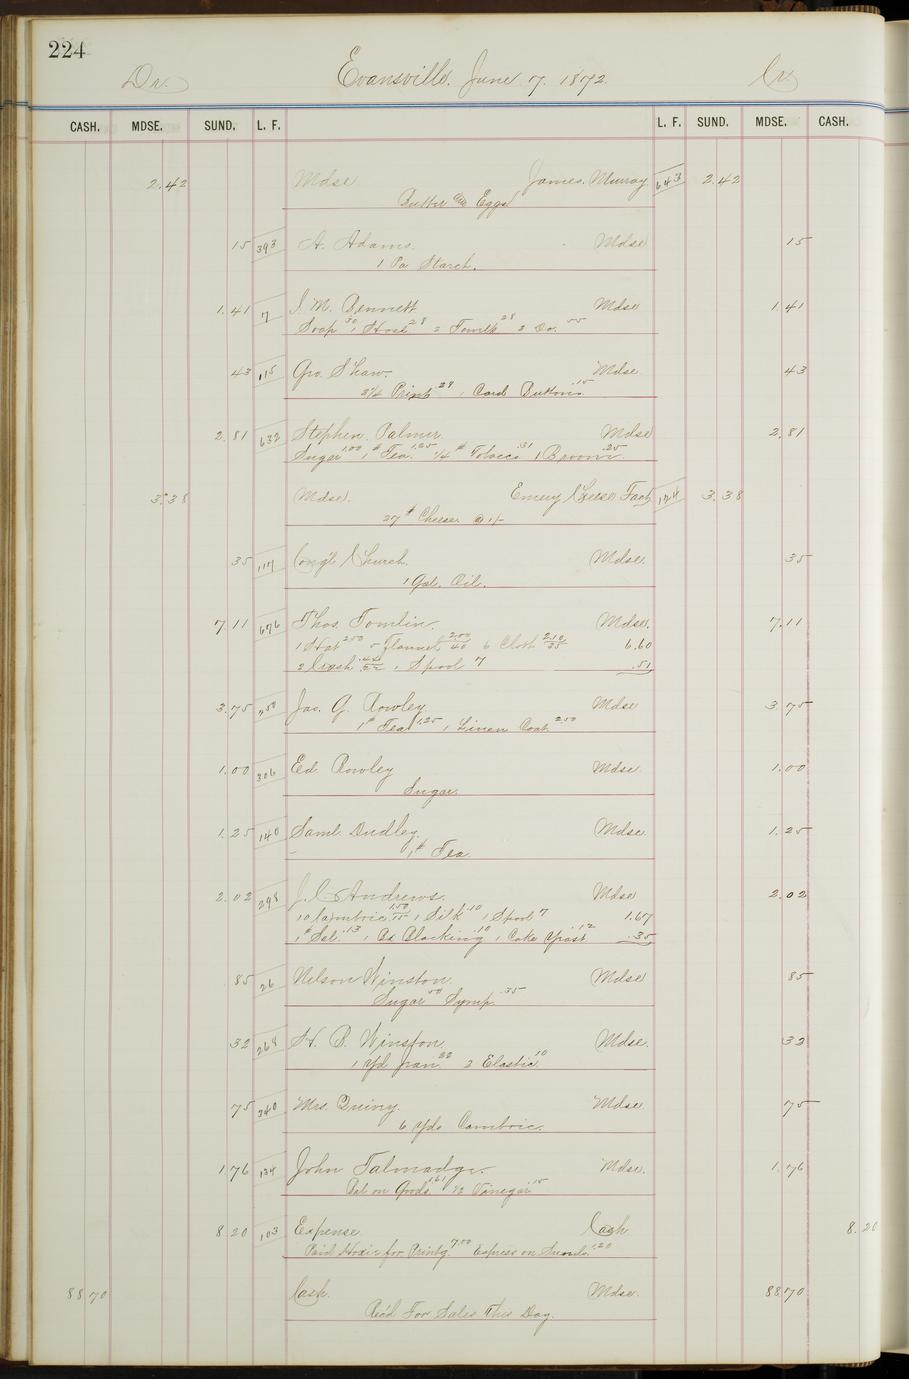 224
Dr. Evansville, June 7. 1872 Cr
CASH. MDSE. SUND. L. F. L. F. SUND. MDSE. CASH.
2.42 Mdse James Murray 643 2.42
Butter and Eggs
15 393 A. Adams. Mdse 15
1 Pa Starch.
1.41 7 J. M. Bennett Mdse 1.41
Soap 30 1 Hose 28 2 Towels 28 2 Do. 55
43 115 Geo. Shaw. Mdse 43
2 1/4 Print 28 1 Card Buttons 15
2.81 632 Stephen Palmer Mdse 2.81
Sugar 1.00 1 # Tea 1.25 1/4 # Tobacco .31 1 Broom .25
3.38 Mdse. Emery Cheese Fact 124 3.38
27 # Cheese @ 1/-
35 117 Cong'l Church. Mdse. 35
1 Gal. Oil.
7.11 676 Thos. Tomlin. Mdse. 7.11
1 Hat 2.50 5 Flannel 2.00/40 6 Cloth 2.10/35 6.60
2 Crash .44/22 1 Spool 7 .51
3.75 250 Jas. G. Rowley Mdse 3.75
1 # Tea 1.25 1 Linen Coat 2.50
1.00 306 Ed. Rowley Mdse. 1.00
Sugar.
1.25 140 Saml. Dudley. Mdse. 1.25
1 # Tea.
2.02 298 J. C. Andrews. Mdse 2.02
10 Cambric 1.50/15 1 Silk .10 1 Spool 7 1.67
1 # Sal. .13 1 Bx Blacking .10 1 Cake Yeast .12 .35
85 26 Nelson Winston. Mdse 85
Sugar 50 Syrup. .35
32 268 H. B. Winston. Mdse. 32
1 Yd Jean 22 2 Elastic 10
75 340 Mrs. Quivey. Mdse. 75
6 Yds Cambric.
1.76 134 John Talmadge. Mdse. 1.76
Bal on Goods. 1.61 1/2 Vinegar 15
8 20 103 Expense Cash 8.20
Paid Hoxie for Printg. 7.00 Express on 1.20
88 70 Cash. Mdse. 88.70
Rec'd For Sales This Day.